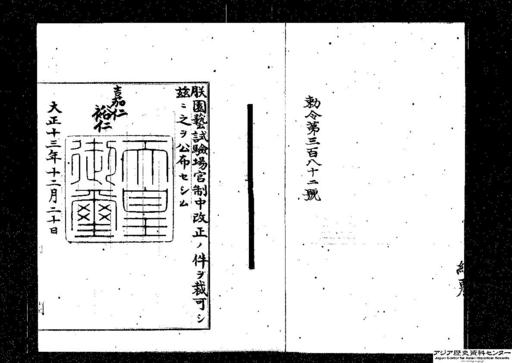 勅令第三百八十二號
朕園藝試驗場官制中改正ノ件ヲ裁可シ
茲ニ之ヲ公布セシム
嘉仁
裕仁
天皇
御璽
大正十三年十二月二十日
アジア歴史資料センター
Japan Center for Asian Historical Records